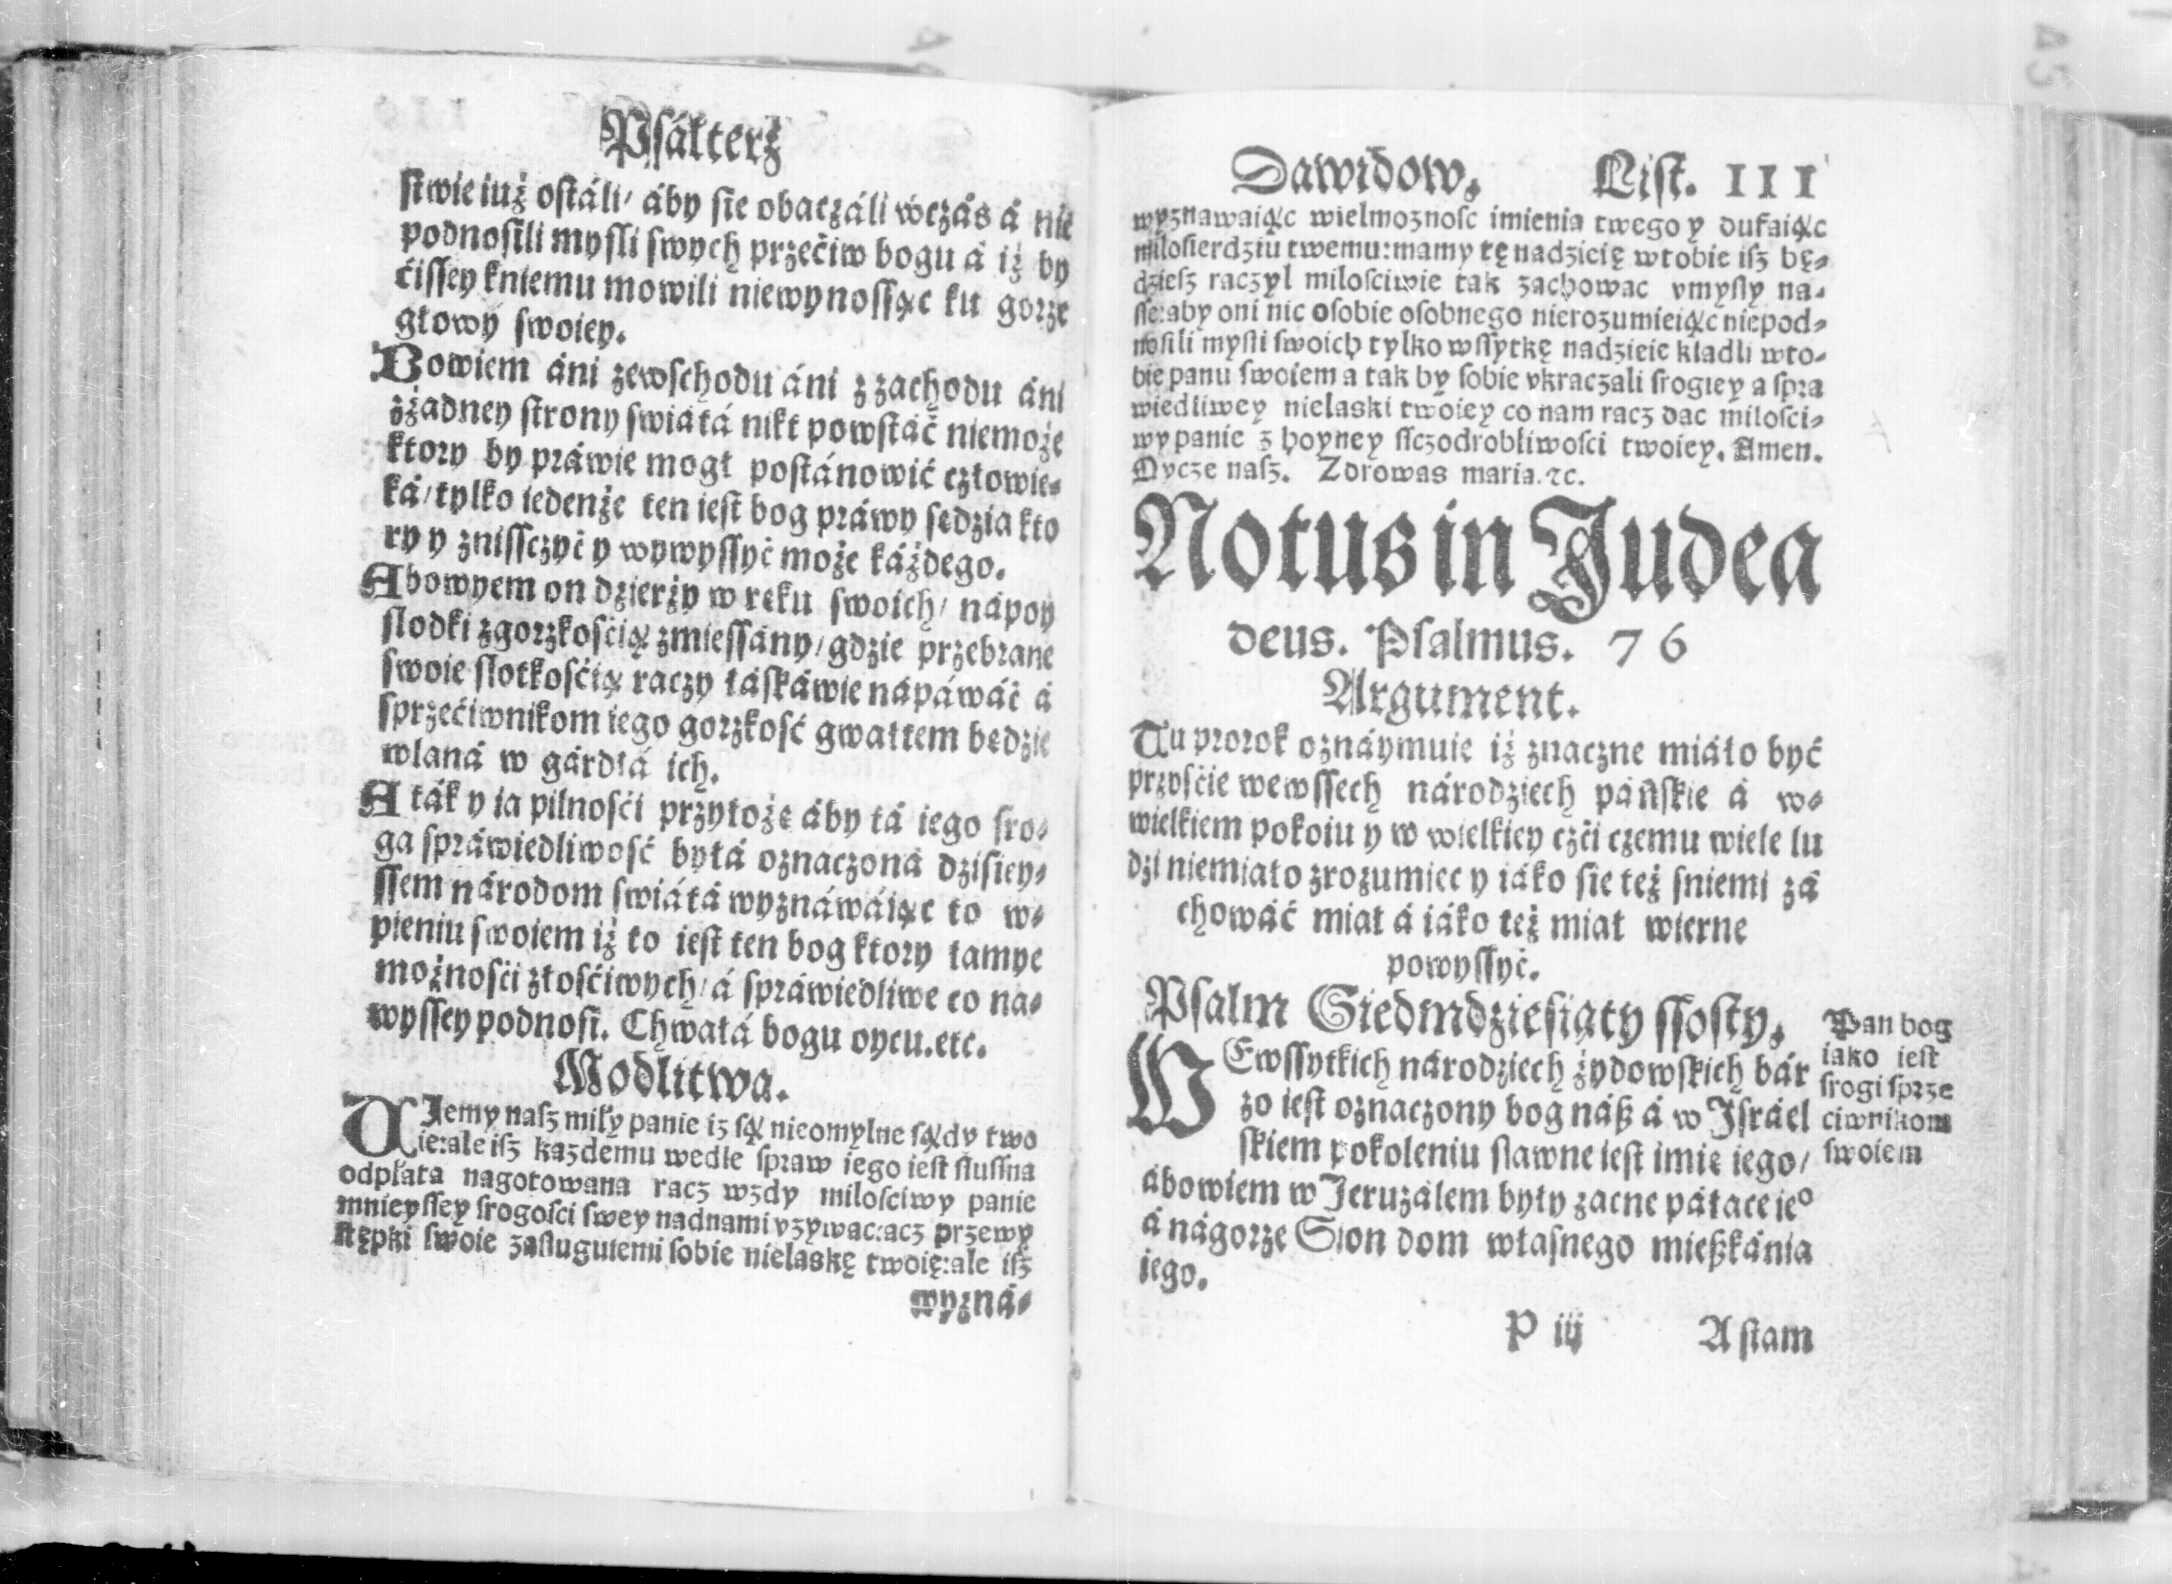 Psałterz
stwie iuż ostáli/ áby sie obaczáli wczás á nie
podnosili mysli swych przećiw bogu á iż by
ćissey kniemu mowili niewynossąc ku gorze
głowy swoiey.
Bowiem áni zewschodu áni z zachodu áni
zżadney strony swiátá nikt powstáć niemoże
ktory by práwie mogł postánowić człowie-
ká/ tylko iedenże ten iest bog práwy sędzia kto
ry y znissczyć y wywyssyć może káżdego.
Abowyem on dzierży w ręku swoich/ nápoy
slodki zgorzkośćią zmiessány/ gdzie przebrane
swoie slotkośćią raczy łáskáwie nápáwáć á
sprzećiwnikom iego gorzkość gwałtem będzie
wlaná w gárdłá ich.
A ták y ia pilnośći przyłożę áby tá iego sro-
ga spráwiedliwość byłá oznaczoná dzisiey-
ssem národom swiátá wyznáwáiąc to w-
pieniu swoiem iż to iest ten bog ktory łamye
możnośći złośćiwych/ á spráwiedliwe co na-
wyssey podnosi. Chwałá bogu oycu.etc.
Modlitwa.
WIemy nasz miły panie iz są nieomylne sądy two
ie:ale isz kazdemu wedle spraw iego iest slussna
odpłata nagotowana racz wzdy milosciwy panie
mnieyssey srogosci swey nadnami vzywac:acz przewy
stępki swoie zaslugujemi sobie nielaskę twoię:ale isz
wyzná-
Dawidow. List. 111
wyznawaiąc wielmoznosc imienia twego y dufaiąc
milosierdziu twemu:mamy tę nadzieię wtobie isz bę-
dziesz raczyl milosciwie tak zachowac vmysly na-
sse:aby oni nic osobie osobnego nierozumieiąc niepod-
nosili mysli swoich tylko wssytkę nadzieie kladli wto-
bie panu swoiem a tak by sobie vkraczali srogiey a spra
wiedliwey nielaski twoiey co nam racz dac milosci-
wy panie z hoyney sczodrobliwosci twoiey. Amen.
Oycze nasz. Zdrowas maria.⁊c.
Notus in Judea
deus. Psalmus. 76
Argument.
Tu prorok oznáymuie iż znaczne miáło być
przyśćie wewssech národziech páńskie á w-
wielkiem pokoiu y w wielkiey czći czemu wiele lu
dzi niemiało zrozumiec y iáko sie też sniemi zá
chowáć miał á iáko też miał wierne
powyssyć.
Psalm Siedmdziesiąty ssosty.
WEwssytkich národziech żydowskich bár
zo iest oznaczony bog náß á w Jsráel
skiem pokoleniu sławne iest imię iego/
ábowiem w Jeruzálem były zacne páłace ieº
á nágorze Sion dom własnego mießkánia
iego.
Pan bog
iako iest
srogi sprze
ciwnikom
swoiem
P iij A stam